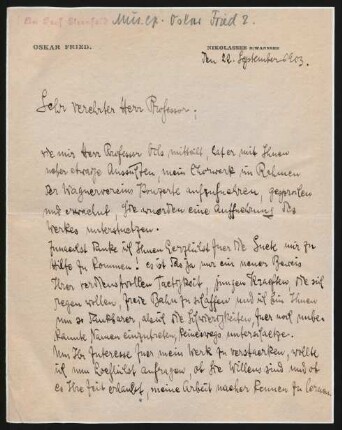 Mus. ep. Oskar Fried 8.
OSKAR FRIED.
NIKOLASSEE B. WANNSEE
Den 22. September 1903.
Sehr verehrter Herr Professor,
wie mir Herr Professor Ochs mitteilt, hat er mit Ihnen
ueber etwaige Aussichten mein Chorwerk im Rahmen
der Wagnervereins Konzerte aufzufuehren, gesprochen
und erwaehnt, Sie wuerden eine Auffuehrung des
Werkes unterstuetzen.
Zunaechst danke ich Ihnen herzlichst fuer die Guete mir zu
Hilfe zu kommen! es ist dies ja nur ein neuer Beweis
Ihrer verdienstvollen Taetigkeit, jungen Kraeften, die sich
regen wollen, freie Bahn zu schaffen und ich bin Ihnen
um so dankbarer als ich die Schwierigkeiten fuer noch unbe-
kannte Namen einzutreten, keineswegs unterschaetze.
Um Ihr Interesse fuer mein Werk zu verstaerken, wollte
ich nun hoeflichst anfragen, ob Sie Willens sind und ob
es Ihre Zeit erlaubt, meine Arbeit naeher kennen zu lernen.